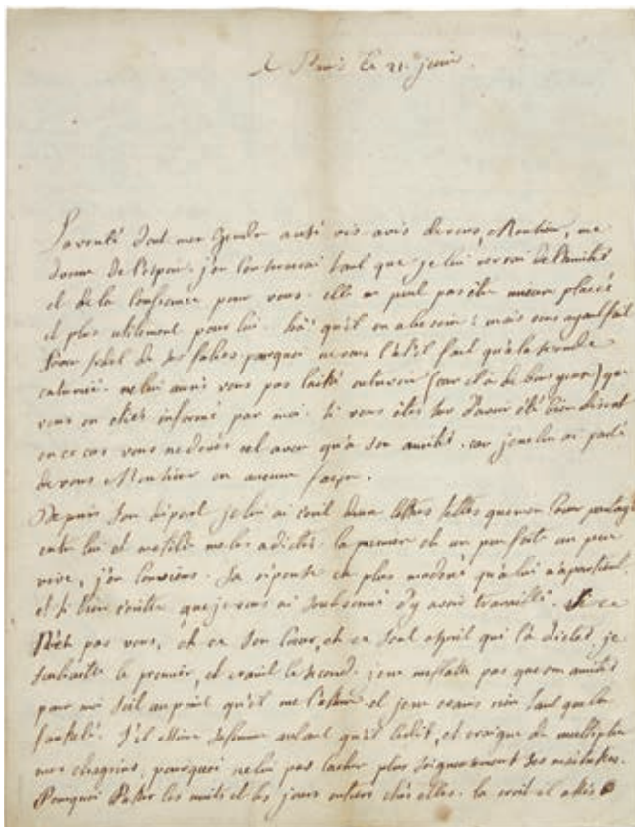 A Paris le 21. juin.
La verité dont mon gendre a usé vis avis de vous, Monsieur, me
donne de l'espoir. j'en conserverai tant que je lui verrai de l'amitié
et de la confiance pour vous. elle ne peut pas être mieux placée
et plus utilement pour lui. qu'il en a besoin; mais vous ayant fait
de ses folies pourquoi ne vous l'at'il fait qu'à la seconde
ne lui auriés vous pas laissé (car il a de bons yeux) que
vous en etiés informé par moi. si vous êtes sur d'avoir été bien discret
en ce cas vous ne devés cet aveu qu'à son amitié. car je ne lui ai parlé
de vous Monsieur en aucune façon.
Depuis son départ je lui ai écrit deux lettres telles que mon coeur partagé
entre lui et ma fille me les a dictés. la premiere est un peu forte un peu
vive, j'en conviens. sa réponse est plus moderé qu'à lui n'apartient.
et si bien écritte que je vous ai soubsonné d'y avoir travaillé. si ce
n'est pas vous, est ce son coeur, est ce son esprit qui l'a dictée, je
souhaitte le premier, et craint le second. je ne me flatte pas que son amitié
pour moi soit au point qu'il me et je ne crains rien tant que la
fausseté. s'il aime sa femme autant qu'il le dit, et craigne de multiplier
mes chagrins, pourquoi ne lui pas cacher plus soigneusement ses maitresses.
Pourquoi passer les nuits et les jours entiers chés elles. la croit il assés